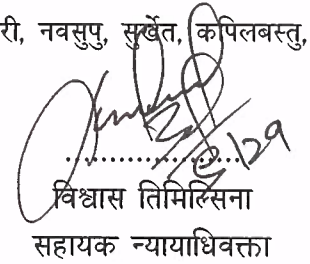 री, नवसुपु, सुर्खेत, कपिलबस्तु,
विश्वास तिमिल्सिना
सहायक न्यायाधिवक्ता